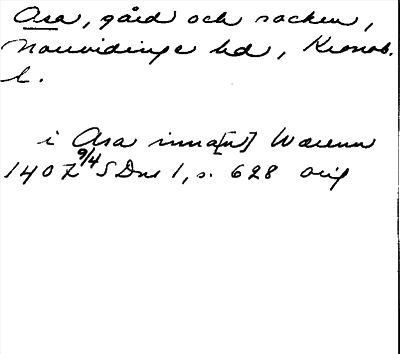 Asa, gård och socken,
Norrvidinge hd, Kronob.
l.
i Asa inna[n] Wærend
1407 9/4 SDns 1, s. 628 orig